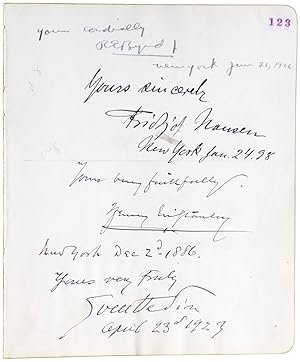 123
yours cordially
R E Byrd
New York June 26, 19
Yours sincerely
Fridtjof Nansen
New York Jan. 24. 98
Yours very faithfully
Henry M Stanley
New York Dec 2d 1886.
Yours very truly
Sven Hedin
April 23d 1923